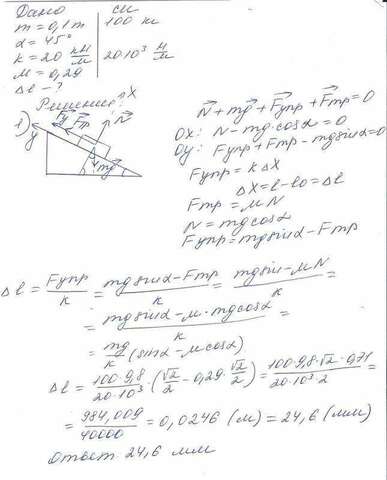 Дано
m = 0,1 т
α = 45°
k = 20 кН/м
μ = 0,29
Δl - ?
СИ
100 кг
20·10³ Н/м
Решение:
1) y Fy Fтр X N mg
N + mg + Fупр + Fтр = 0
Ox: N - mg·cosα = 0
Oy: Fупр + Fтр - mg sinα = 0
Fупр = k Δx
Δx = l - l₀ = Δl
Fтр = μN
N = mg cosα
Fупр = mg sinα - Fтр
Δl = Fупр/k = (mg sinα - Fтр)/k = (mg sin - μN)/k =
= (mg sinα - μ·mg cosα)/k =
= mg/k (sinα - μ cosα)
Δl = (100·9,8)/(20·10³) · (√2/2 - 0,29·√2/2) = (100·9,8·√2·0,71)/(20·10³·2) =
= 984,009/40000 = 0,0246 (м) = 24,6 (мм)
Ответ: 24,6 мм